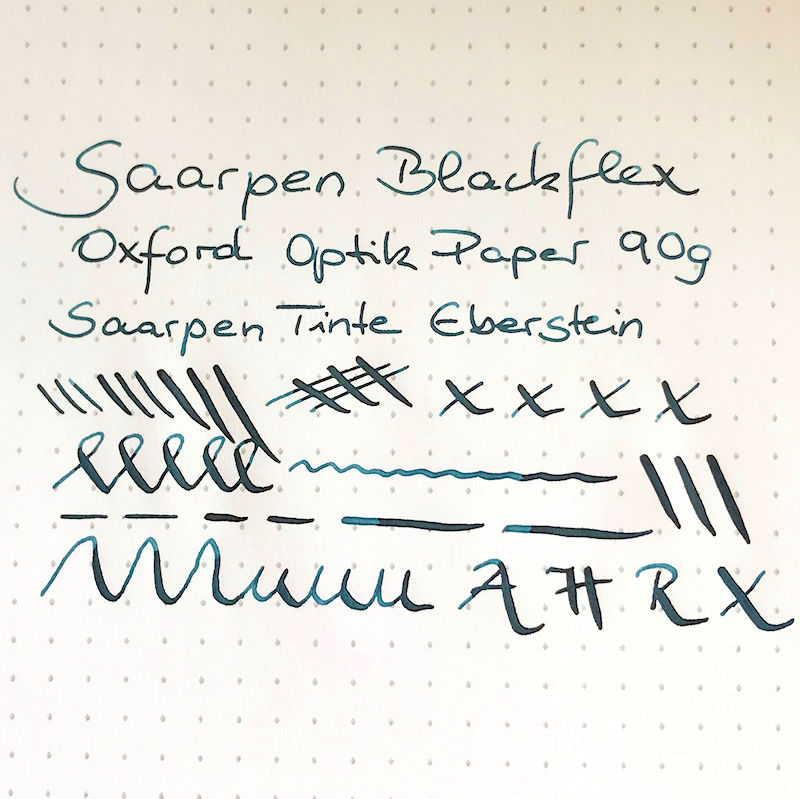 Saarpen Blackflex
Oxford Optik Paper 90g
Saarpen Tinte Eberstein
x x x x
A H R X